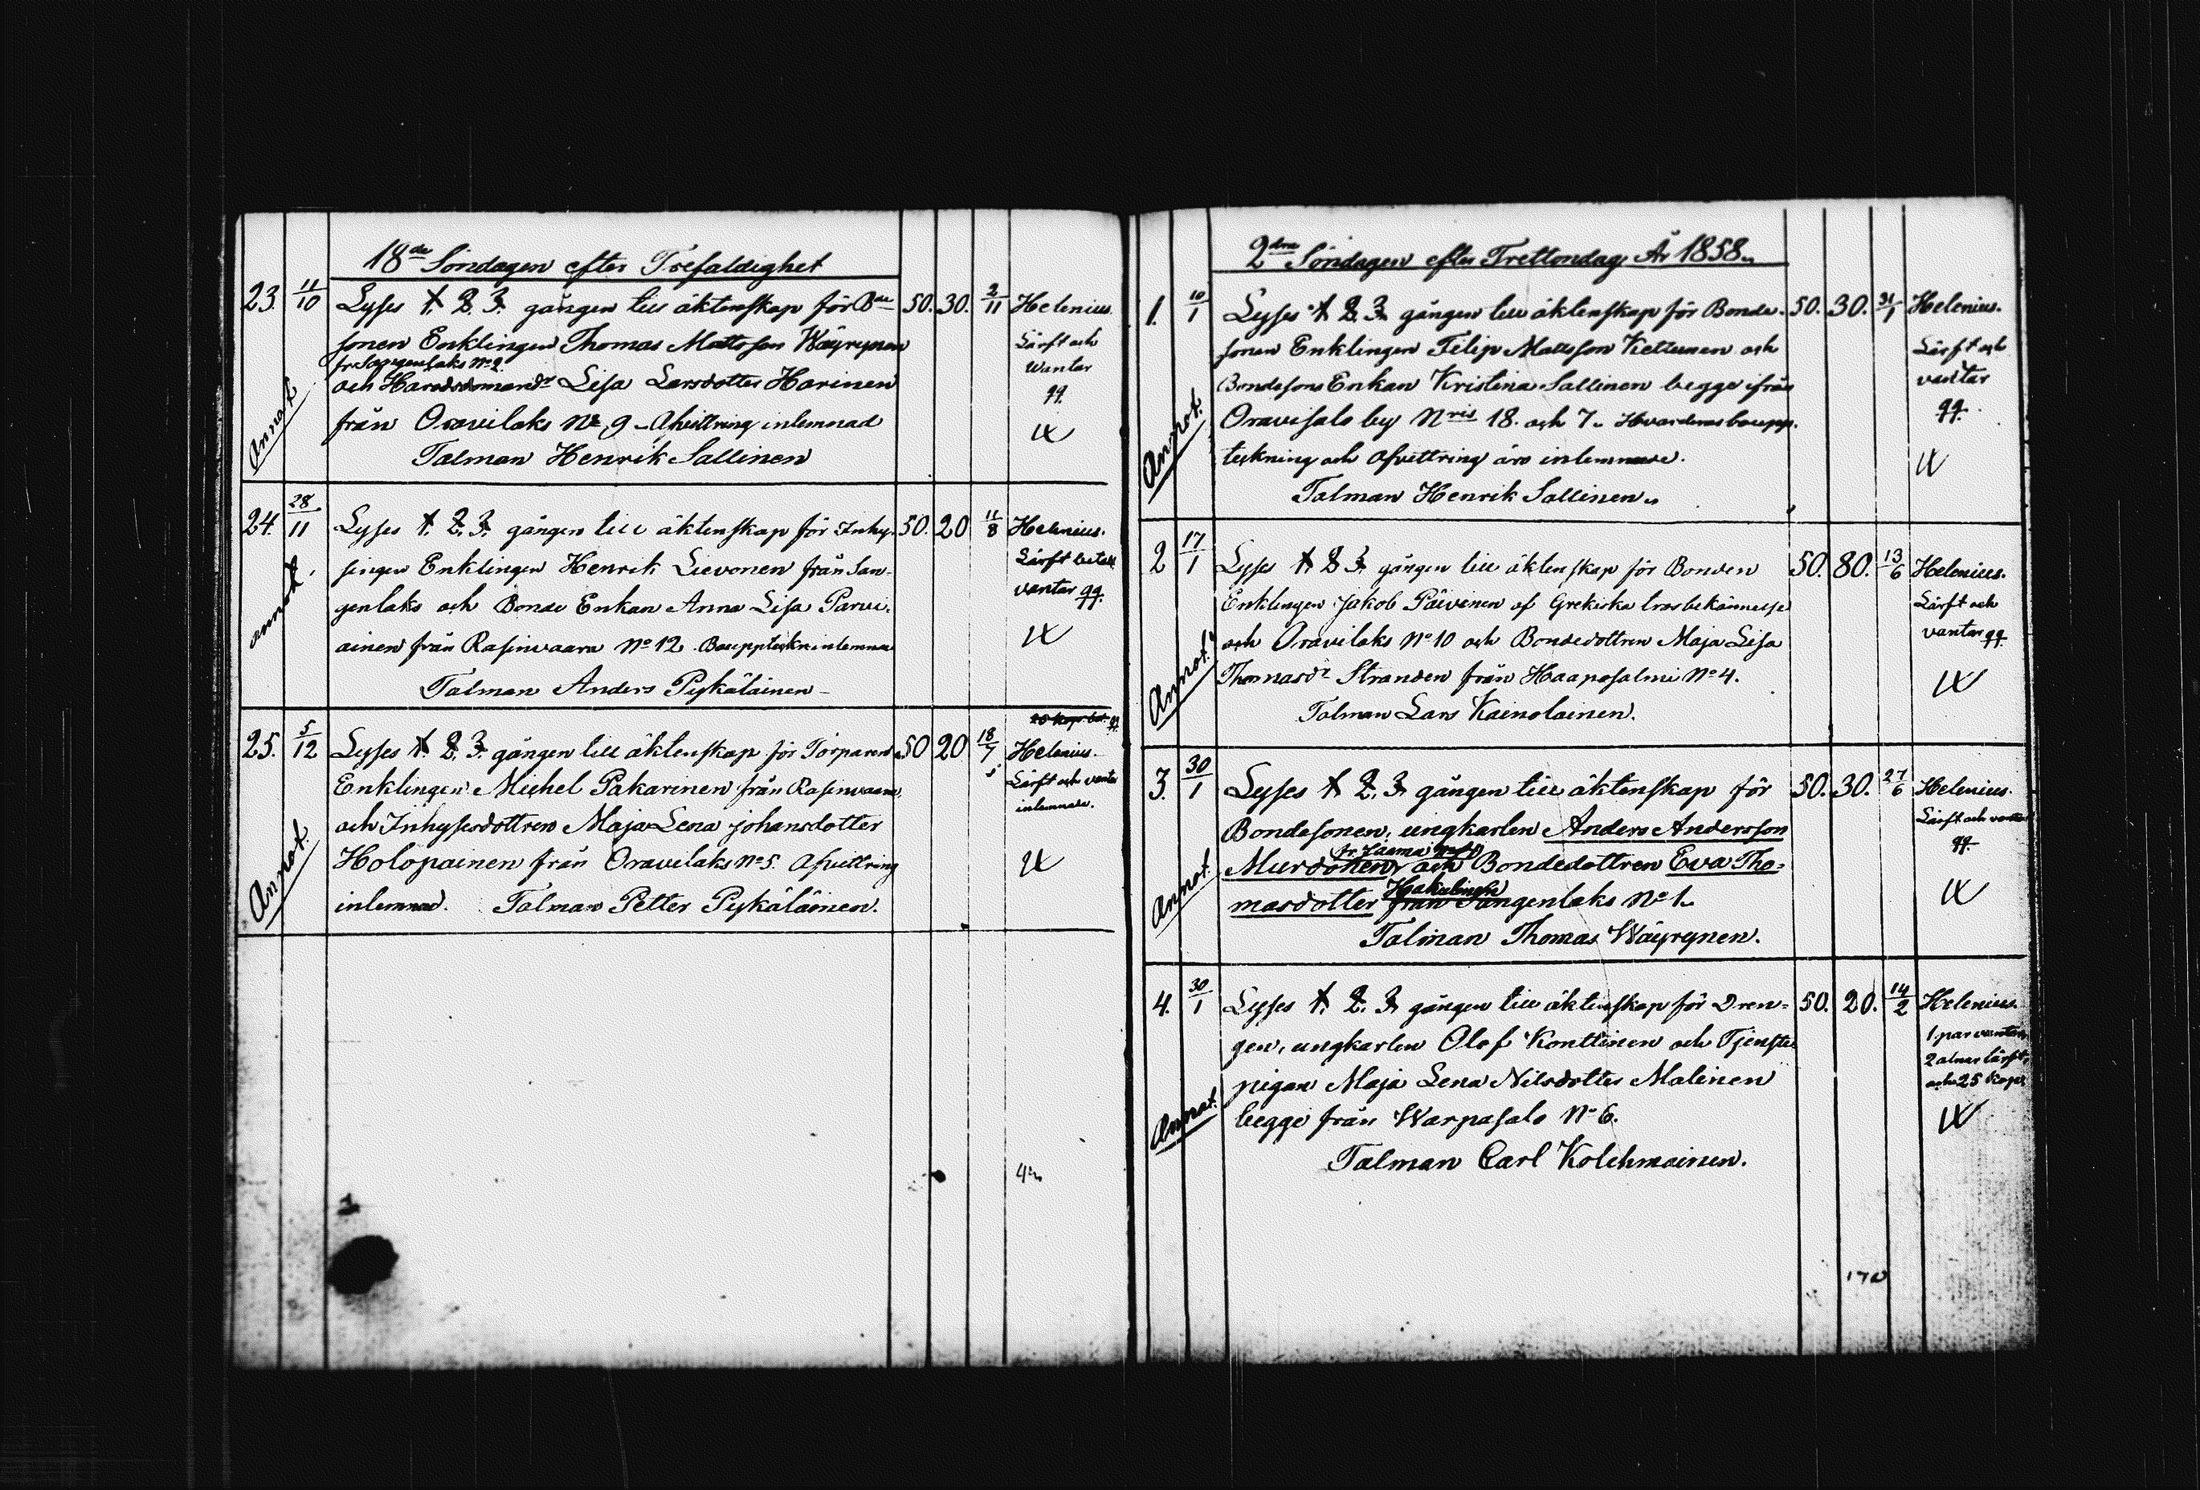 18de Söndagen efter Trefaldighet
23. 11/10 Lyses 1. 2. 3. gången till äktenskap för Bde 50. 30. 2/11 Helenius.
sonen Enklingen Thomas Mattsson Wäyrynen Lärft och
fr Sangenlaks No 2. Wantar
och Lisa Larsdotter Harinen qq.
Annot. från Oravilaks No 9 - Afvittring inlemnad
Talman Henrik Sallinen
24. 28/11 Lyses 1. 2. 3. gången till äktenskap för Inhy- 50. 20 11/8 Helenius.
singen Enklingen Henrik Lievonen från San- Lärft betalt
genlaks och Bonde Enkan Anna Lisa Parvi- vantar qq.
annot. ainen från Rasinvaara No 12. inlemnad
Talman Anders Pykäläinen -
25. 5/12 Lyses 1. 2. 3. gången till äktenskap för Torparen 50 20 18/7 Helenius.
Enklingen Michel Pakarinen från Rasinvaara Lärft och vantar
och Inhysesdottren Maja Lena Johansdotter inlemnade.
Annot. Holopainen från Oravilaks No 5. Afvittring
inlemnad. Talman Petter Pykäläinen.
2dra Söndagen efter Trettondag År 1858.
1. 10/1 Lyses 1. 2. 3. gången till äktenskap för Bonde- 50. 30. 31/1 Helenius.
sonen Enklingen Filip Mattsson Kettunen och Lärft och
Bondesons Enkan Kristina Sallinen begge ifrån vantar
Annot. Oravisalo by Nris 18. och 7. Hvarderas boupp- qq.
teckning och afvittring äro inlemnade.
Talman Henrik Sallinen.
2 17/1 Lyses 1. 2. 3. gången till äktenskap för Bonden 50. 80. 13/6 Helenius.
Enklingen Jakob Päivinen af Grekiska trosbekännelse Lärft och
och Oravilaks No 10 och Bondedottren Maja Lisa vantar qq.
Annot. Thomasdr Stranden från Haapasalmi No 4.
Talman Lars Kainolainen.
3. 30/1 Lyses 1. 2. 3. gången till äktenskap för 50. 30. 27/6 Helenius.
Bondesonen, ungkarlen Anders Andersson Lärft och vantar
Annot. Mursonen och Bondedottren Eva Tho- qq.
masdotter från Sangenlaks No 1.
Talman Thomas Wäyrynen.
4. 30/1 Lyses 1. 2. 3. gången till äktenskap för Dren- 50. 20. 14/2 Helenius.
gen, ungkarlen Olof Konttinen och Tjenste- 1 par vantar,
pigan Maja Lena Nilsdotter Malinen 2 alnar lärft,
Annot. begge från Warpasalo No 6. och 25 kop.
Talman Carl Kolehmainen.
170